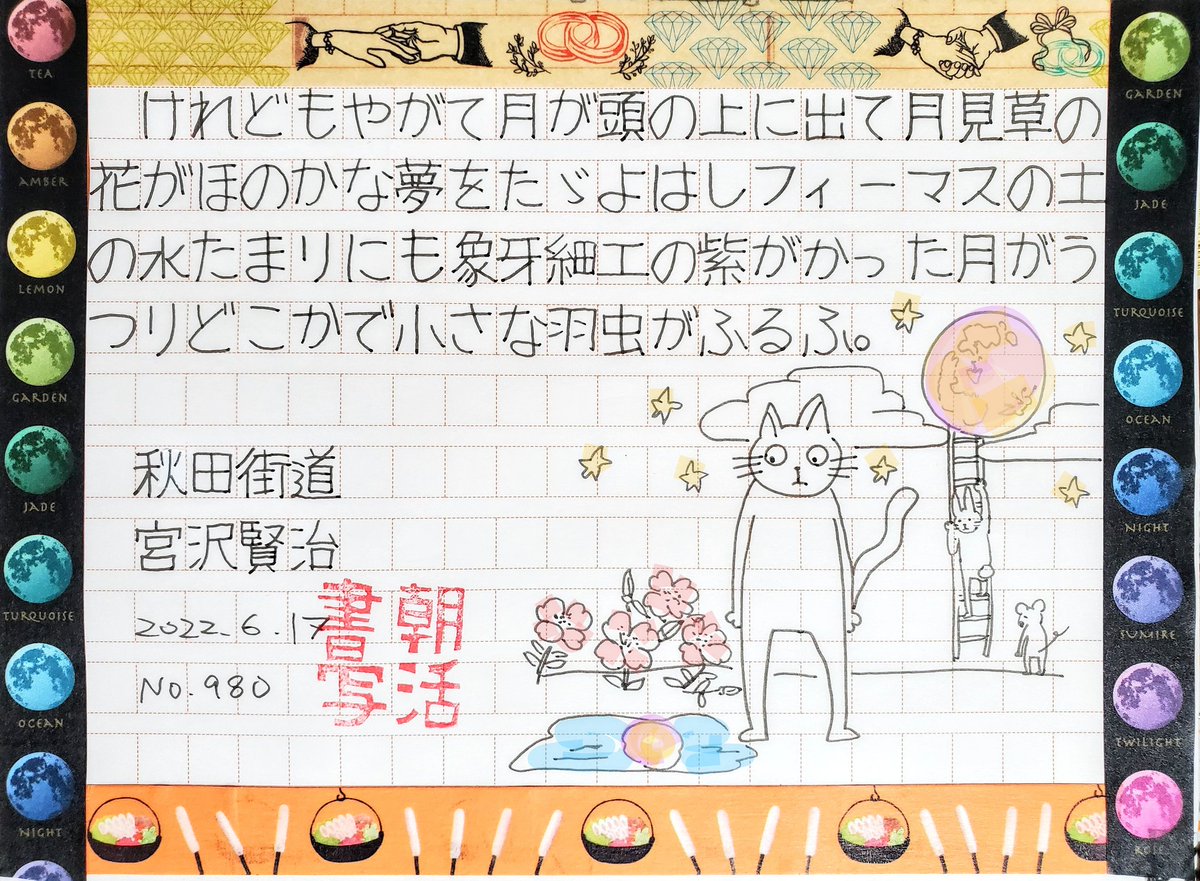 けれどもやがて月が頭の上に出て月見草の
花がほのかな夢をたゞよはしフィーマスの土
の水たまりにも象牙細工の紫がかった月がう
つりどこかで小さな羽虫がふるふ。
秋田街道
宮沢賢治
2022.6.17
No.980
朝活
書写
TEA
AMBER
LEMON
GARDEN
JADE
TURQUOISE
OCEAN
NIGHT
GARDEN
JADE
TURQUOISE
OCEAN
NIGHT
SUMIRE
TWILIGHT
ROSE